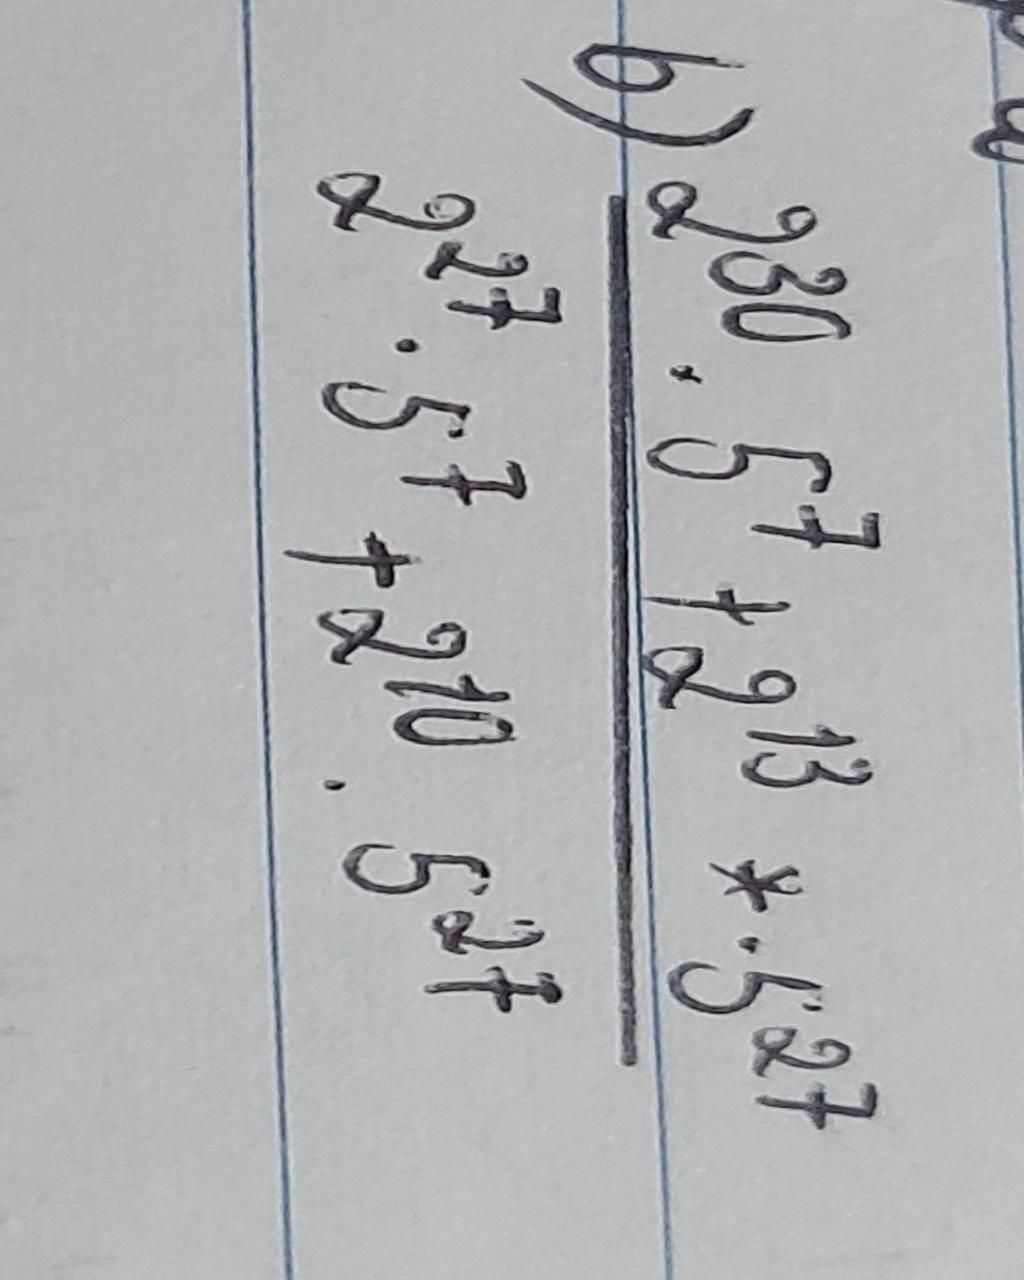 b) 2³⁰ . 5⁷ + 2¹³ * . 5²⁷
2²⁷ . 5⁷ + 2¹⁰ . 5²⁷